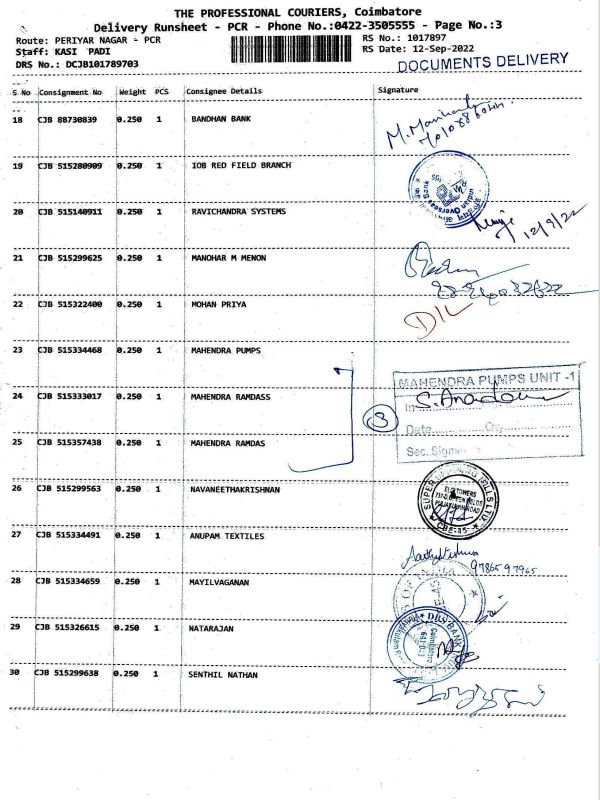 THE PROFESSIONAL COURIERS, Coimbatore
Delivery Runsheet - PCR - Phone No.:0422-3505555 - Page No.:3
Route: PERIYAR NAGAR - PCR RS No.: 1017897
Staff: KASI PADI RS Date: 12-Sep-2022
DRS No.: DCJB101789703 DOCUMENTS DELIVERY
S No Consignment No Weight PCS Consignee Details Signature
18 CJB 88730839 0.250 1 BANDHAN BANK
19 CJB 515280909 0.250 1 IOB RED FIELD BRANCH
20 CJB 515140911 0.250 1 RAVICHANDRA SYSTEMS
12/9/22
21 CJB 515299625 0.250 1 MANOHAR M MENON
22 CJB 515322400 0.250 1 MOHAN PRIYA
D/L
23 CJB 515334468 0.250 1 MAHENDRA PUMPS
MAHENDRA PUMPS UNIT -1
24 CJB 515333017 0.250 1 MAHENDRA RAMDASS
3
Date
25 CJB 515357438 0.250 1 MAHENDRA RAMDAS
Sec. Sign
26 CJB 515299563 0.250 1 NAVANEETHAKRISHNAN
27 CJB 515334491 0.250 1 ANUPAM TEXTILES
28 CJB 515334659 0.250 1 MAYILVAGANAN
29 CJB 515326615 0.250 1 NATARAJAN
30 CJB 515299638 0.250 1 SENTHIL NATHAN